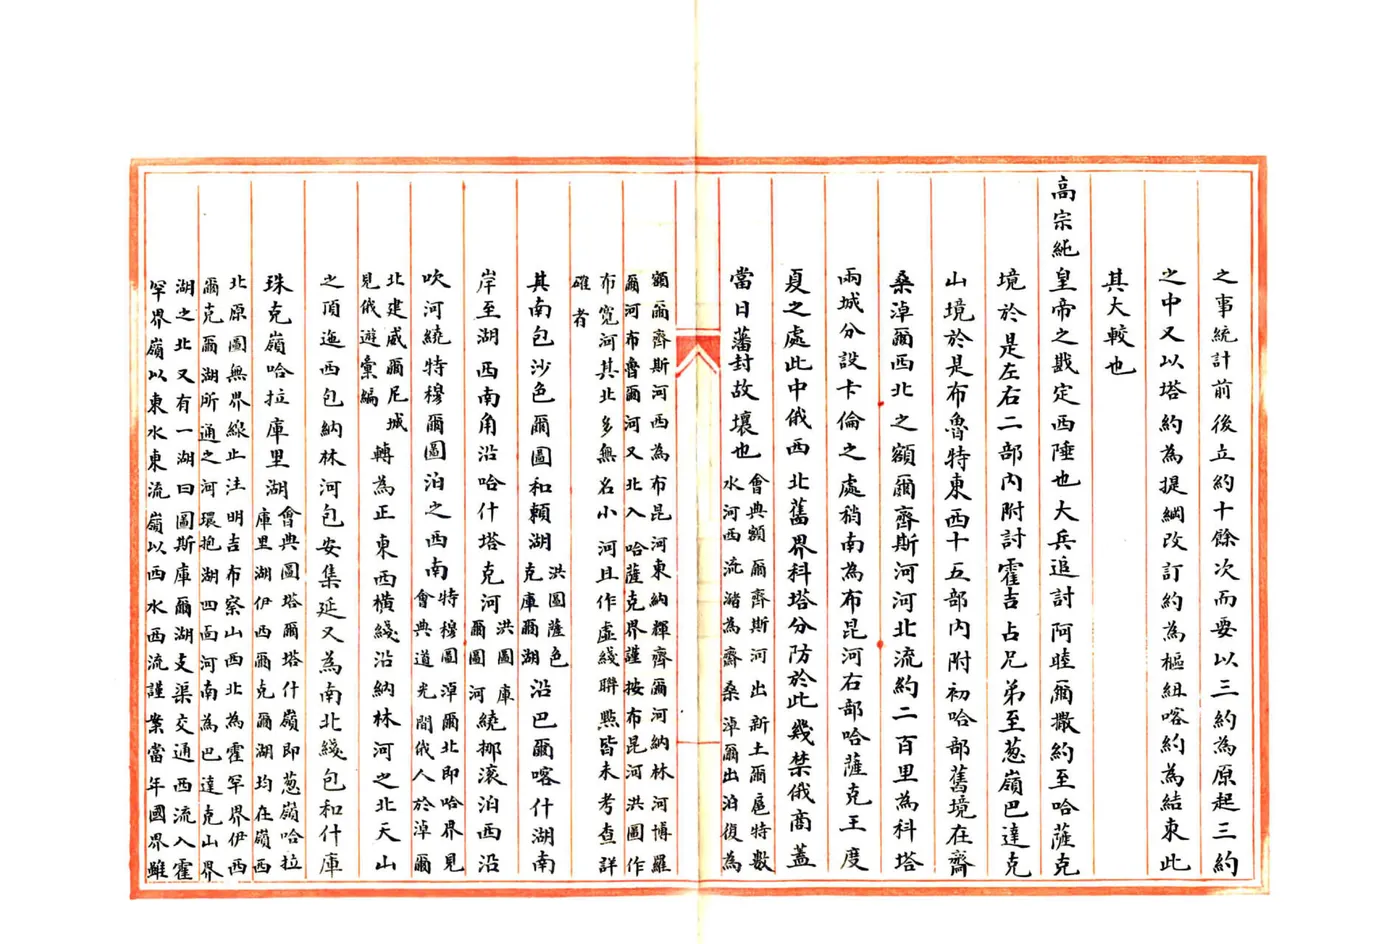 之事統計前後立約十餘次而要以三約為原起三約
之中又以塔約為提綱改訂約為樞紐喀約為結束此
其大較也
高宗純皇帝之戡定西陲也大兵追討阿睦爾撒約至哈薩克
境於是左右二部內附討霍吉占兄弟至葱嶺巴達克
山境於是布魯特東西十五部內附初哈部舊境在齋
桑淖爾西北之額爾齊斯河河北流約二百里為科塔
兩城分設卡倫之處稍南為布昆河右部哈薩克王度
夏之處此中俄西北舊界科塔分防於此幾禁俄商蓋
當日藩封故壤也
會典額爾齊斯河出新土爾扈特數
水河西流瀦為齋桑淖爾出泊復為
額爾齊斯河西為布昆河東納輝齊爾河納林河博羅
爾河布魯爾河又北入哈薩克界謹按布昆河洪圖作
布寬河其北多無名小河且作虛綫聯㸃皆未考查詳
確者
其南包沙色爾圖和賴湖
洪圖薩色
克庫爾湖
沿巴爾喀什湖南
岸至湖西南角沿哈什塔克河
洪圖庫
爾圖河
繞揶滚泊西沿
吹河繞特穆爾圖泊之西南
特穆圖淖爾北即哈界見
會典道光間俄人於淖爾
北建威爾尼城
見俄遊彙編
轉為正東西橫綫沿納林河之北天山
之頂迤西包納林河包安集延又為南北綫包和什庫
珠克嶺哈拉庫里湖
會典圖塔爾塔什嶺即葱嶺哈拉
庫里湖伊西爾克爾湖均在嶺西
北原圖無界線止注明吉布察山西北為霍罕界伊西
爾克爾湖所通之河環抱湖四面河南為巴達克山界
湖之北又有一湖曰圖斯庫爾湖支渠交通西流入霍
罕界嶺以東水東流嶺以西水西流謹案當年國界雖